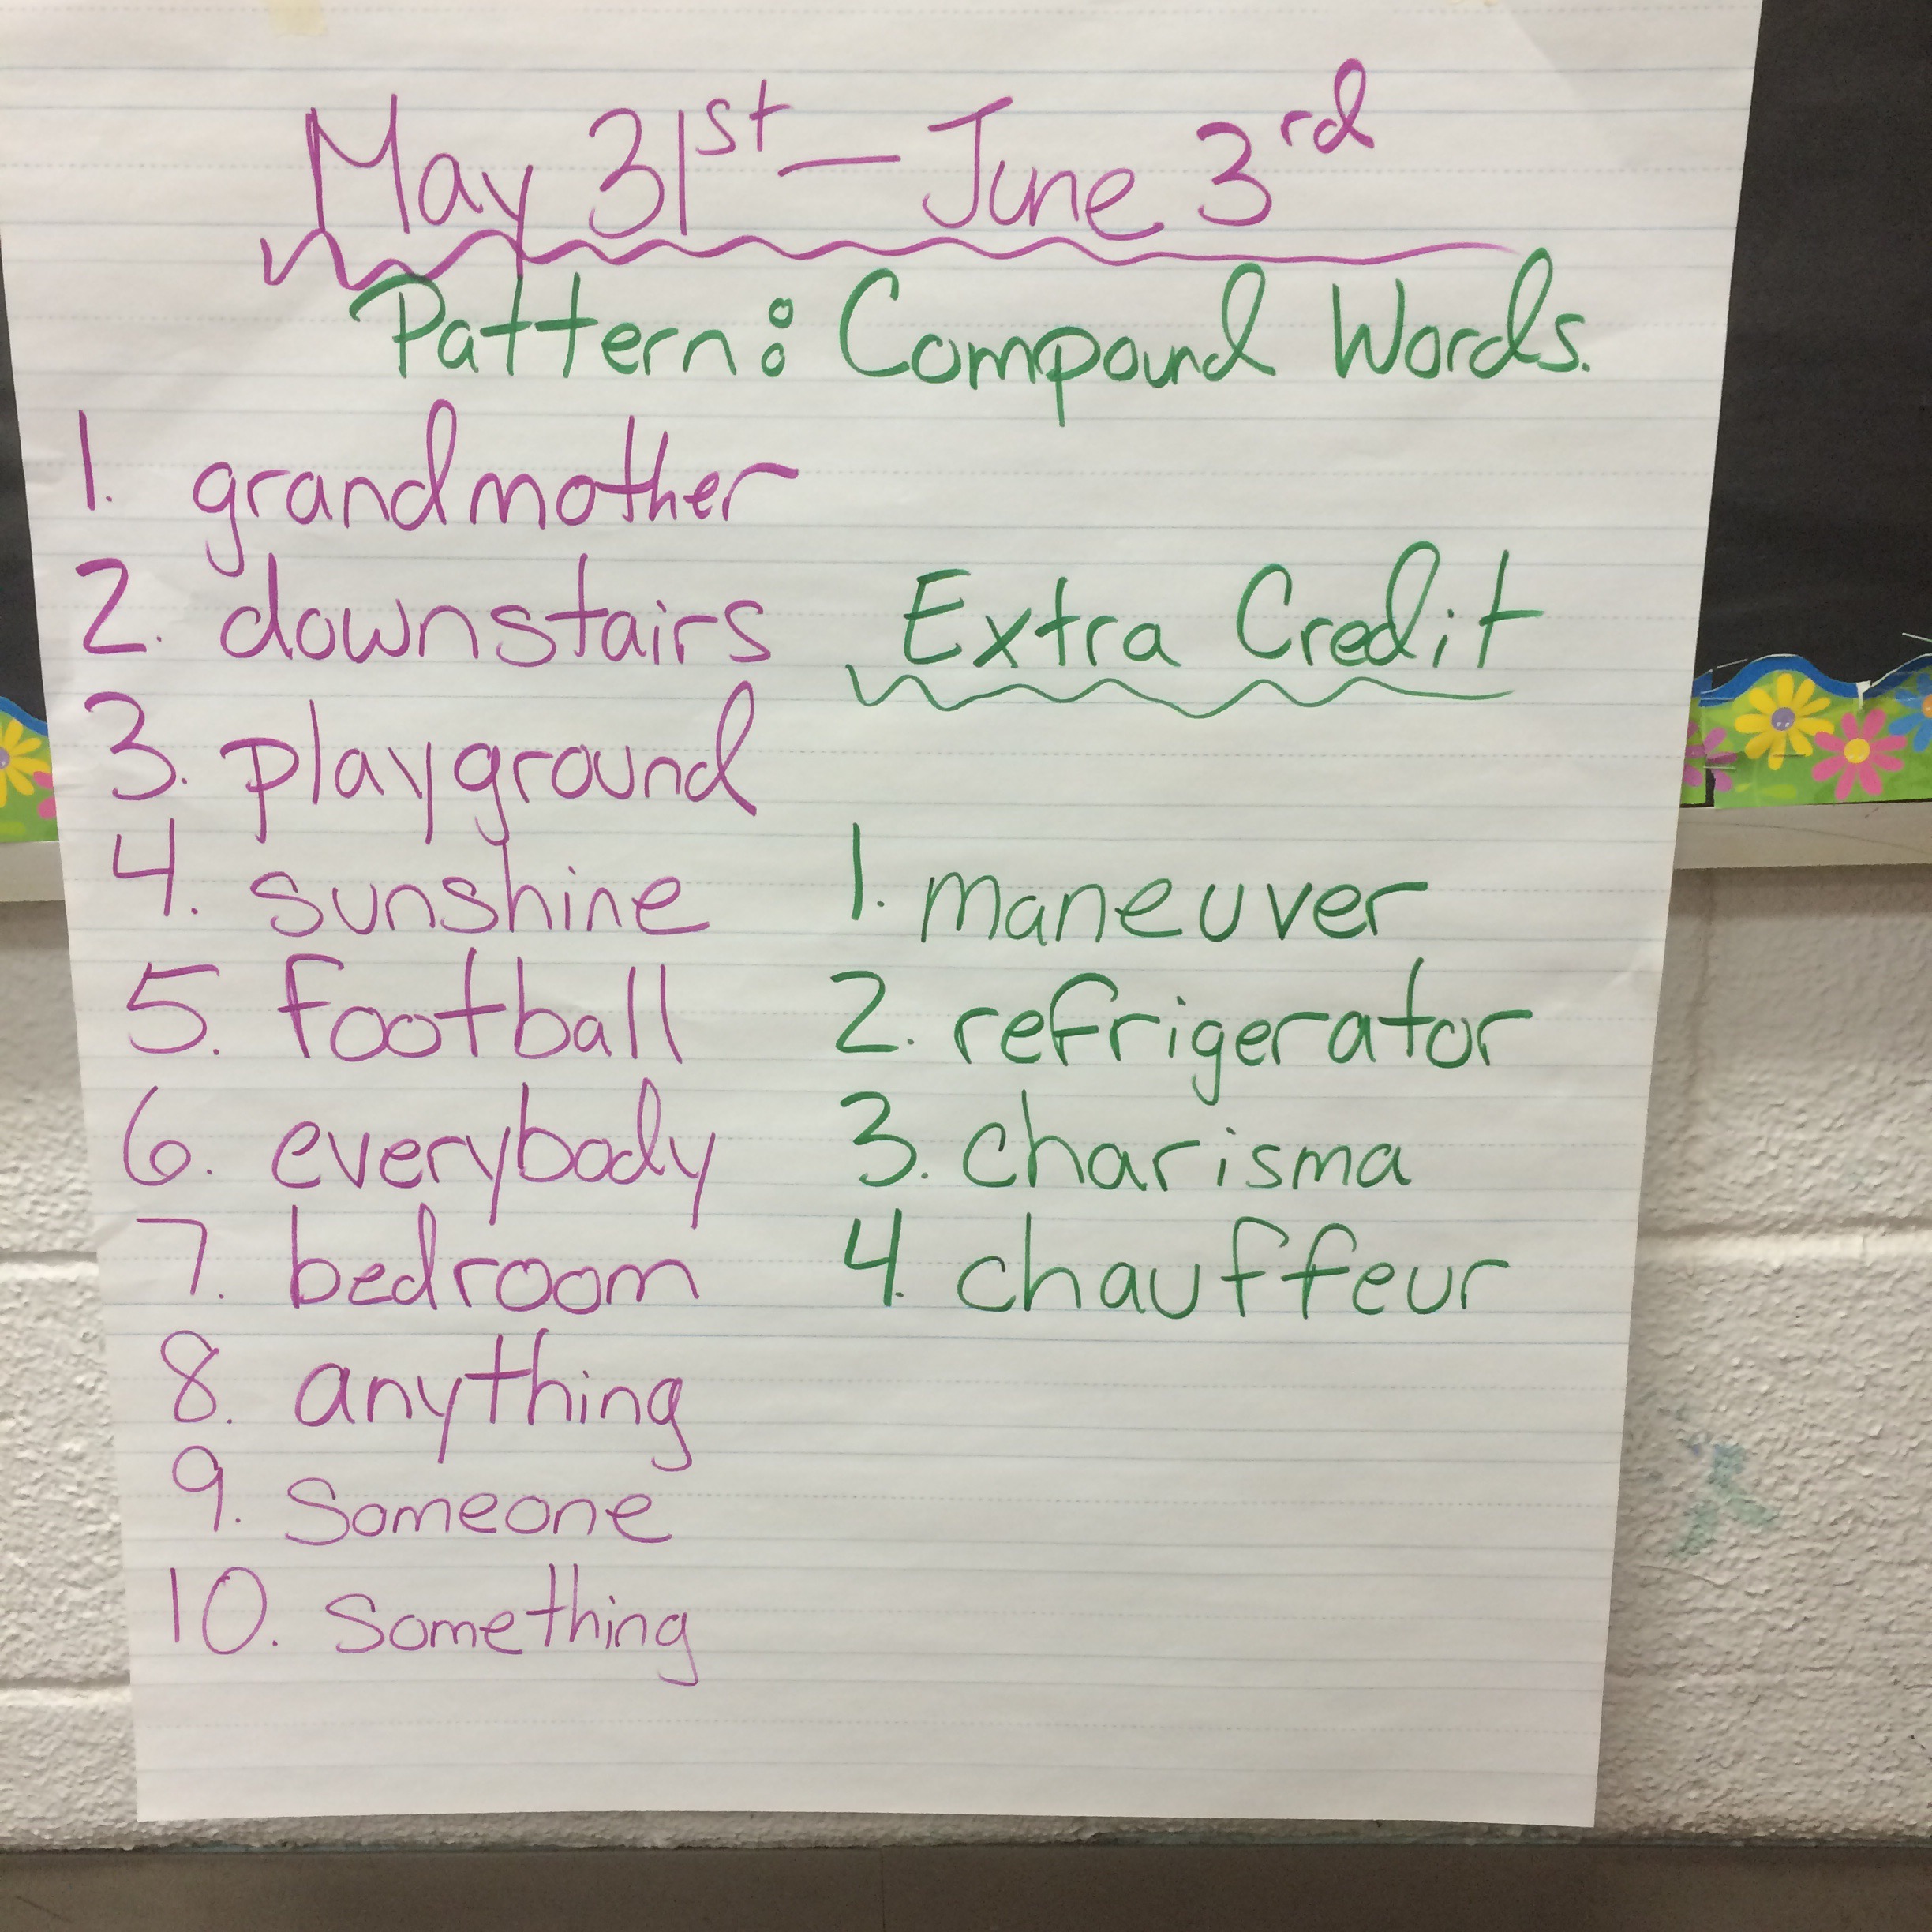 May 31st — June 3rd
Pattern: Compound Words.
1. grandmother
2. downstairs
3. playground
4. sunshine
5. football
6. everybody
7. bedroom
8. anything
9. Someone
10. Something
Extra Credit
1. maneuver
2. refrigerator
3. charisma
4. chauffeur